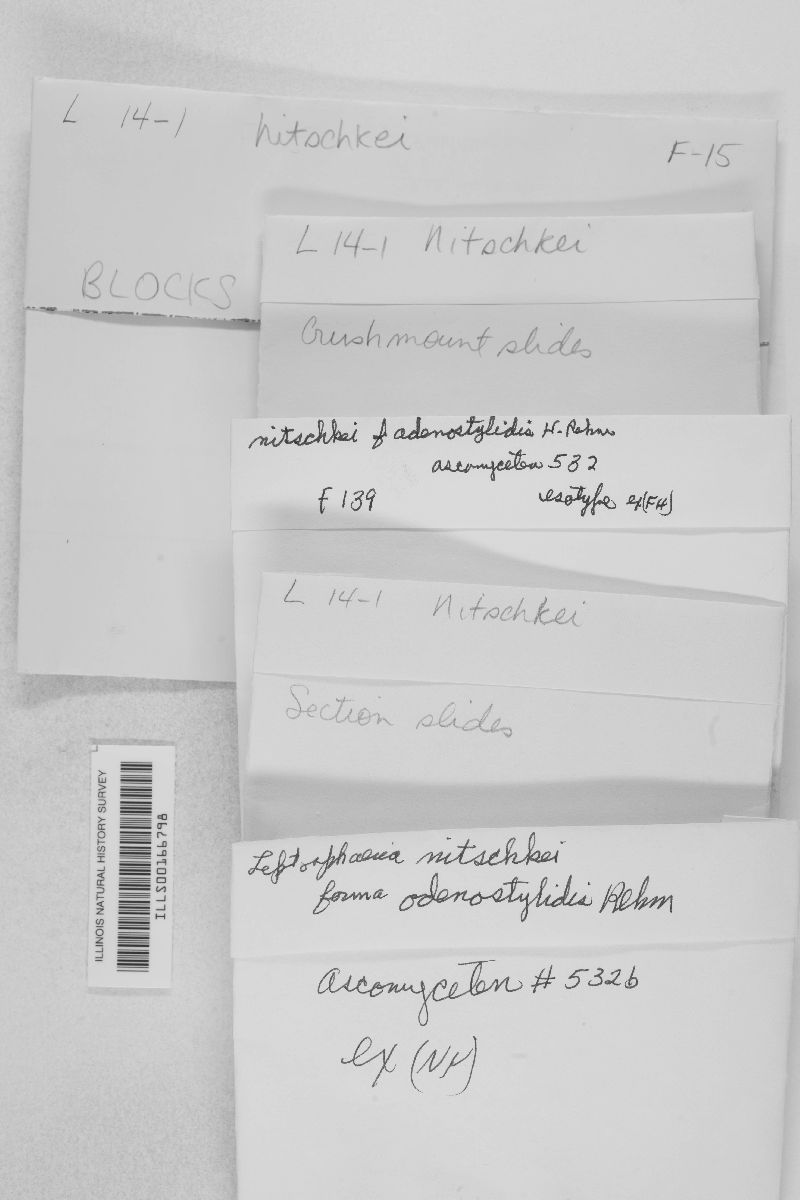 L 14-1 nitschkei F-15
BLOCKS
L 14-1 Nitschkei
Crushmount slides
nitschkei f adenostylidis H. Rehm
ascomyceten 532
F 139 isotype ex(FH)
L 14-1 Nitschkei
Section slides
Leptosphaeria nitschkei
forma adenostylidis Rehm
Ascomyceten # 532b
ex (NY)
ILLINOIS NATURAL HISTORY SURVEY
ILLS00166798